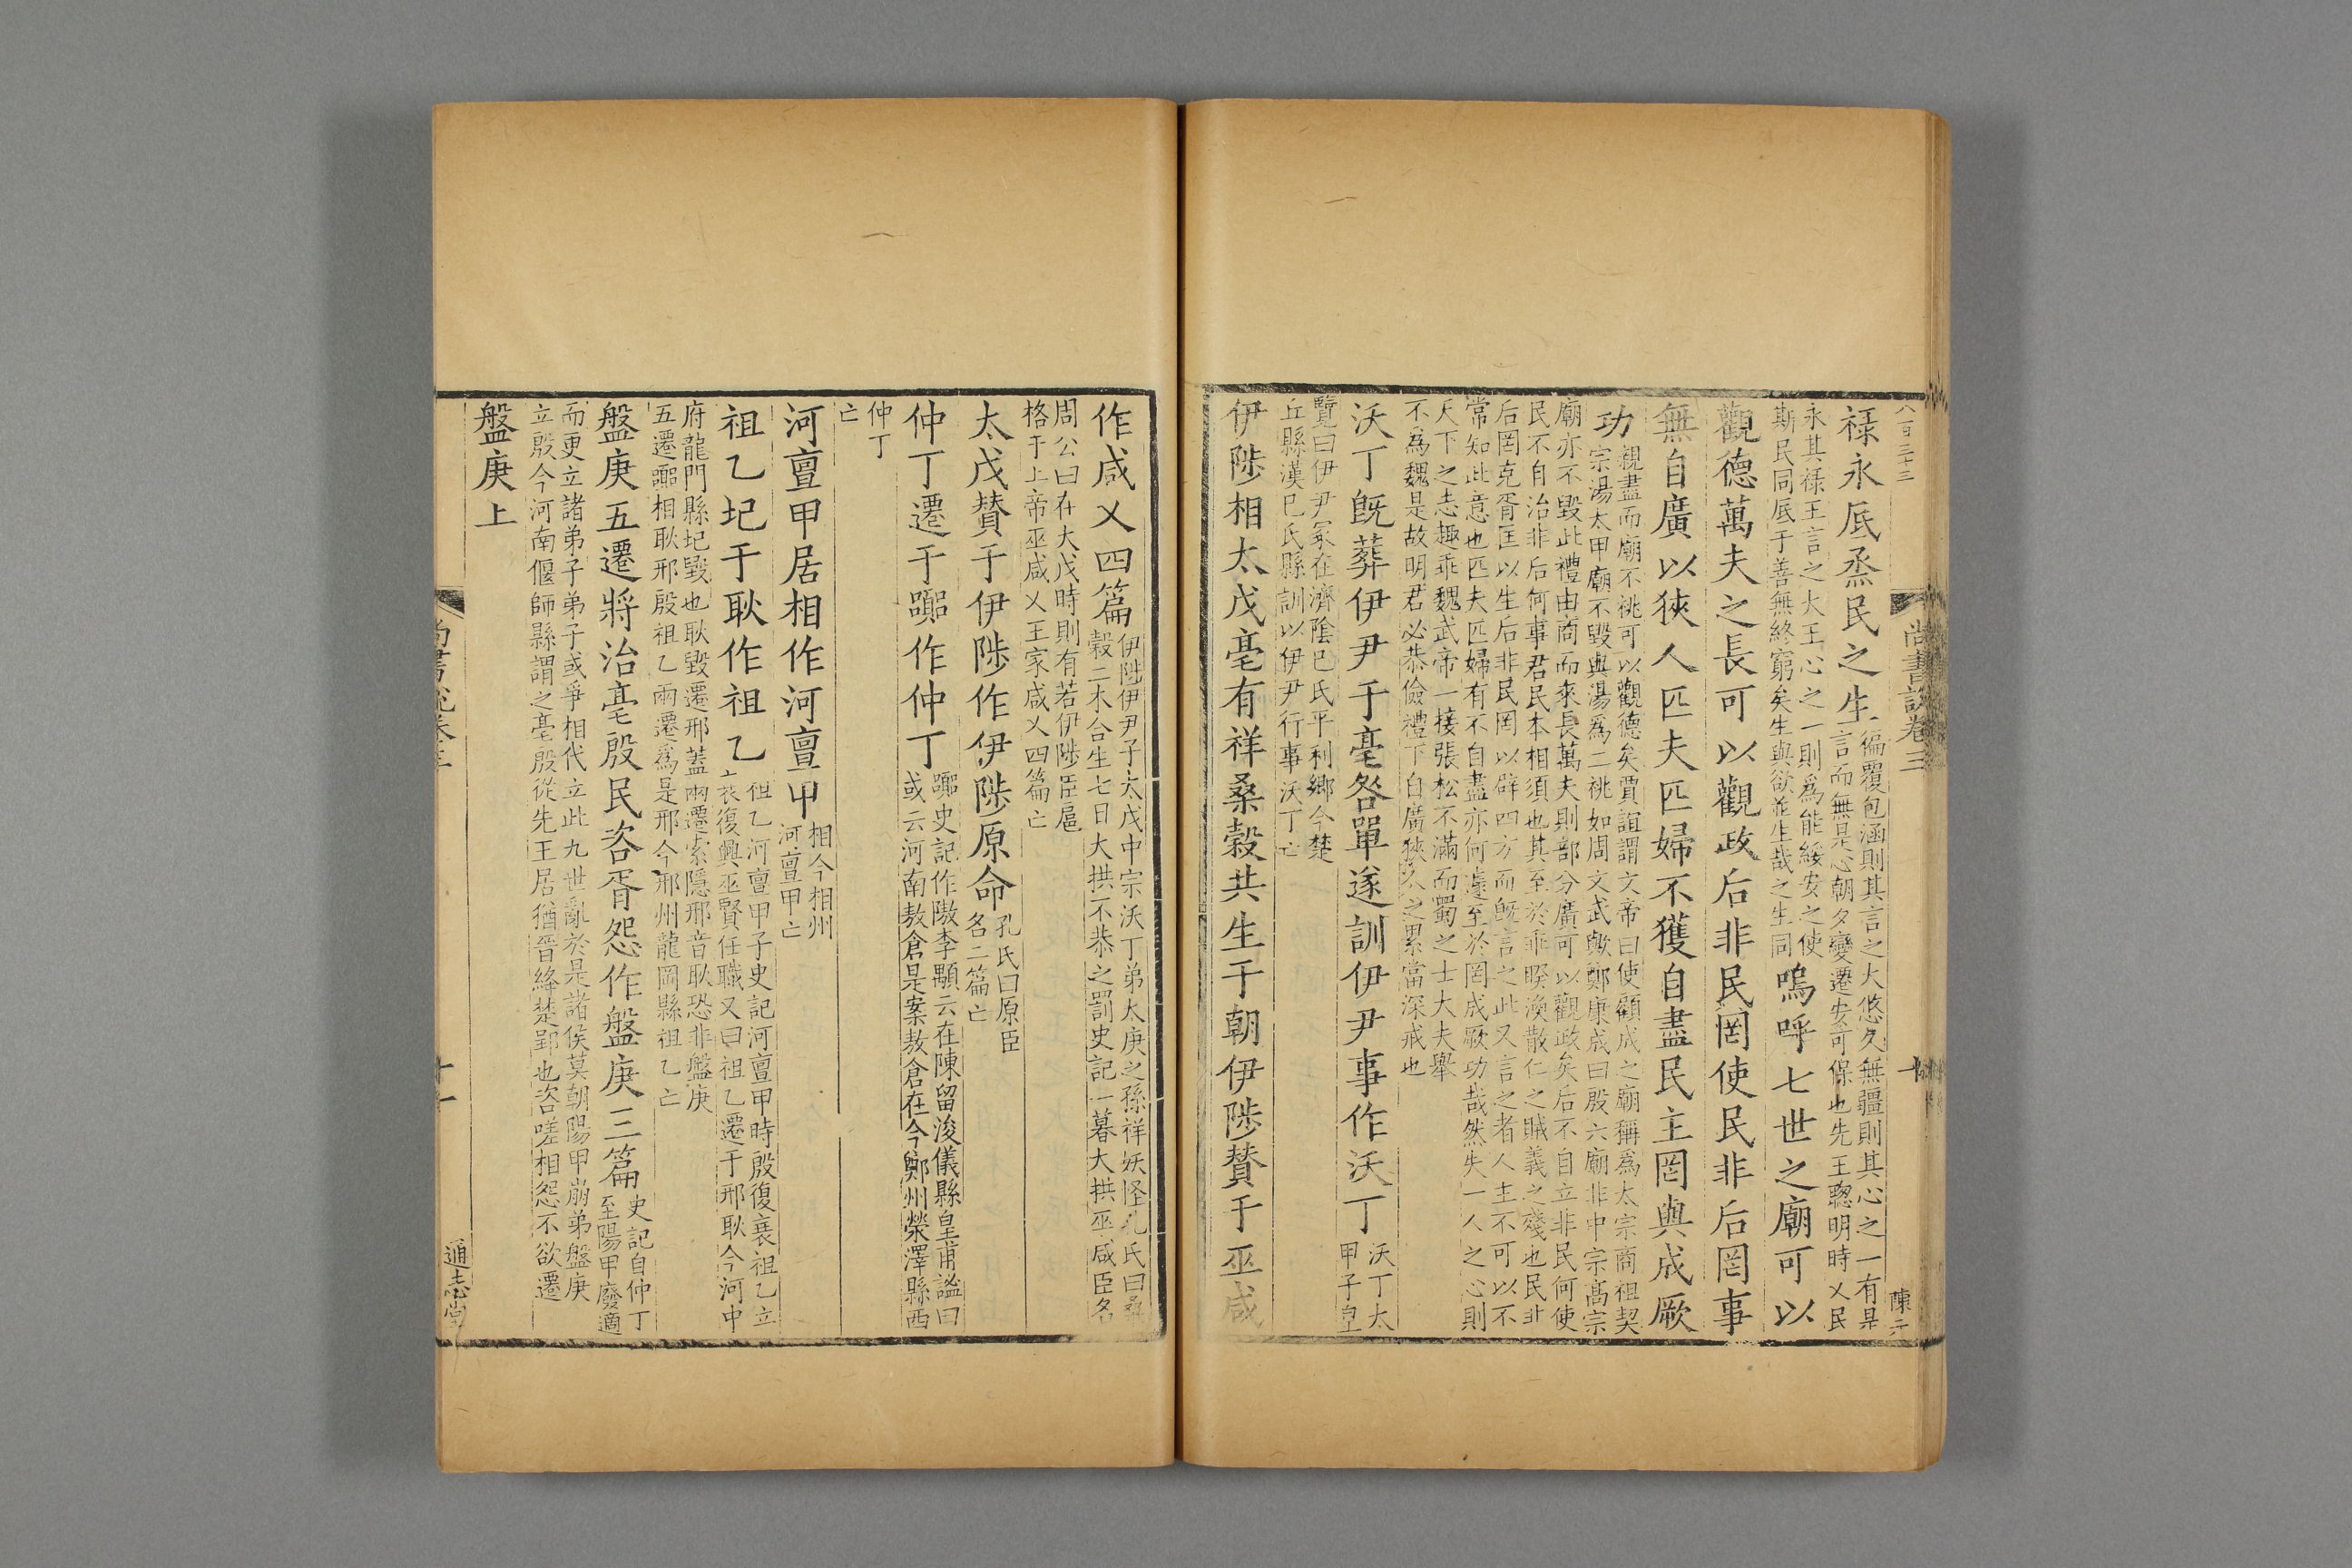 八百三十三
尚書説卷三
十
陳六
祿永厎烝民之生
徧覆包涵則其言之大悠久無疆則其心之一有是
言而無是心朝夕變遷安可保也先王聦明時乂民
永其祿王言之大王心之一則爲能綏安之使
斯民同底于善無終窮矣生與欲並生哉之生同
嗚呼七世之廟可以
觀德萬夫之長可以觀政后非民罔使民非后罔事
無自廣以狹人匹夫匹婦不獲自盡民主罔與成厥
功
親盡而廟不祧可以觀德矣賈誼謂文帝曰使顧成之廟稱爲太宗商祖契
宗湯太甲廟不毀與湯爲二祧如周文武歟鄭康成曰殷六廟非中宗髙宗
廟亦不毀此禮由商而來長萬夫則部分廣可以觀政矣后不自立非民何使
民不自治非后何事君民本相須也其至於乖睽渙散仁之賊義之殘也民非
后罔克胥匡以生后非民罔以辟四方而旣言之此又言之者人主不可以不
常知此意也匹夫匹婦有不自盡亦何遽至於罔成厥功哉然失一人之心則
天下之志趣乖魏武帝一接張松不滿而蜀之士大夫舉
不為魏是故明君必恭儉禮下自廣狹人之累當深戒也
沃丁旣葬伊尹于亳咎單遂訓伊尹事作沃丁
沃丁太
甲子皇
覽曰伊尹冢在濟陰巳氏平利鄉今楚
丘縣漢巳氏縣訓以伊尹行事沃丁亡
伊陟相太戊亳有祥桑榖共生于朝伊陟賛于巫咸
作咸乂四篇
伊陟伊尹子太戊中宗沃丁弟太庚之孫祥妖怪孔氏曰桑
榖二木合生七日大拱不恭之罰史記一暮大拱巫咸臣名
周公曰在大戊時則有若伊陟臣扈
格于上帝巫咸乂王家咸乂四篇亡
太戊賛于伊陟作伊陟原命
孔氏曰原臣
名二篇亡
仲丁遷于嚻作仲丁
嚻史記作隞李顒云在陳留浚儀縣皇甫謐曰
或云河南敖倉是案敖倉在今鄭州滎澤縣西
仲丁
亡
河亶甲居相作河亶甲
相今相州
河亶甲亡
祖乙圮于耿作祖乙
祖乙河亶甲子史記河亶甲時殷復衰祖乙立
殷復興巫賢任職又曰祖乙遷于邢耿今河中
府龍門縣圮毀也耿毀遷邢蓋兩遷索隱邢音耿恐非盤庚
五遷嚻相耿邢殷祖乙兩遷爲是邢今邢州龍岡縣祖乙亡
盤庚五遷將治亳殷民咨胥怨作盤庚三篇
史記自仲丁
至陽甲廢適
而更立諸弟子弟子或爭相代立此九世亂於是諸侯莫朝陽甲崩弟盤庚
立殷今河南偃師縣謂之亳殷從先王居猶晉絳楚郢也咨嗟相怨不欲遷
盤庚上
尚書説卷三
十一
通志堂